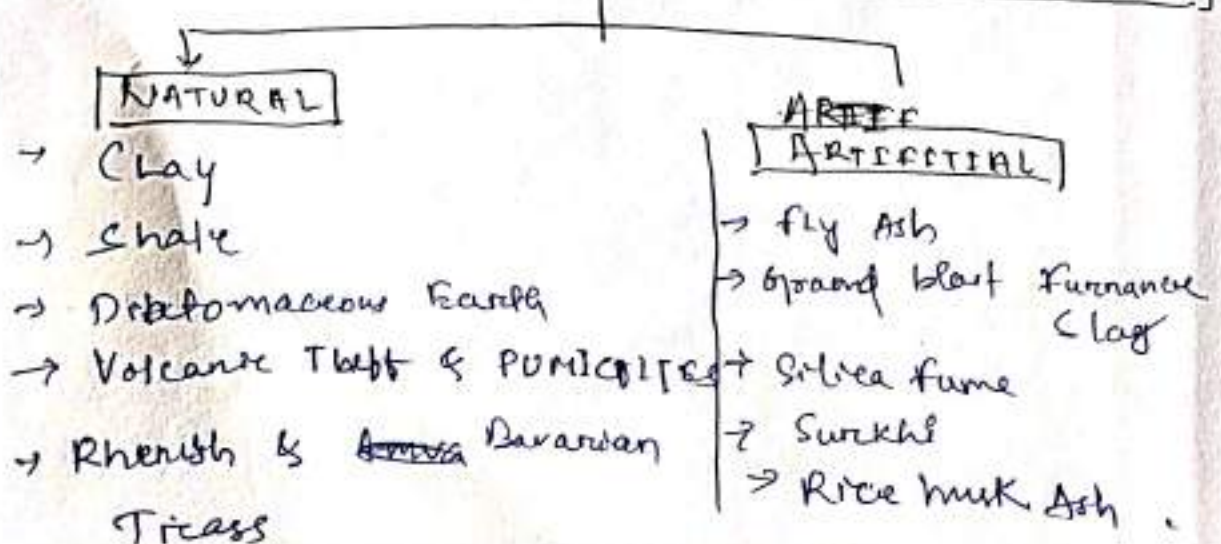 NATURAL
→ Clay
→ Shale
→ Diatomaceous Earth
→ Volcanic Theft & PUMICDITES
→ Rhenish & Bavarian
Tricass
ARTIF
ARTIFICTIAL
→ fly Ash
→ Graand blast Furnance
Clag
→ Silica fume
→ Surkhi
→ Rice husk Ash .